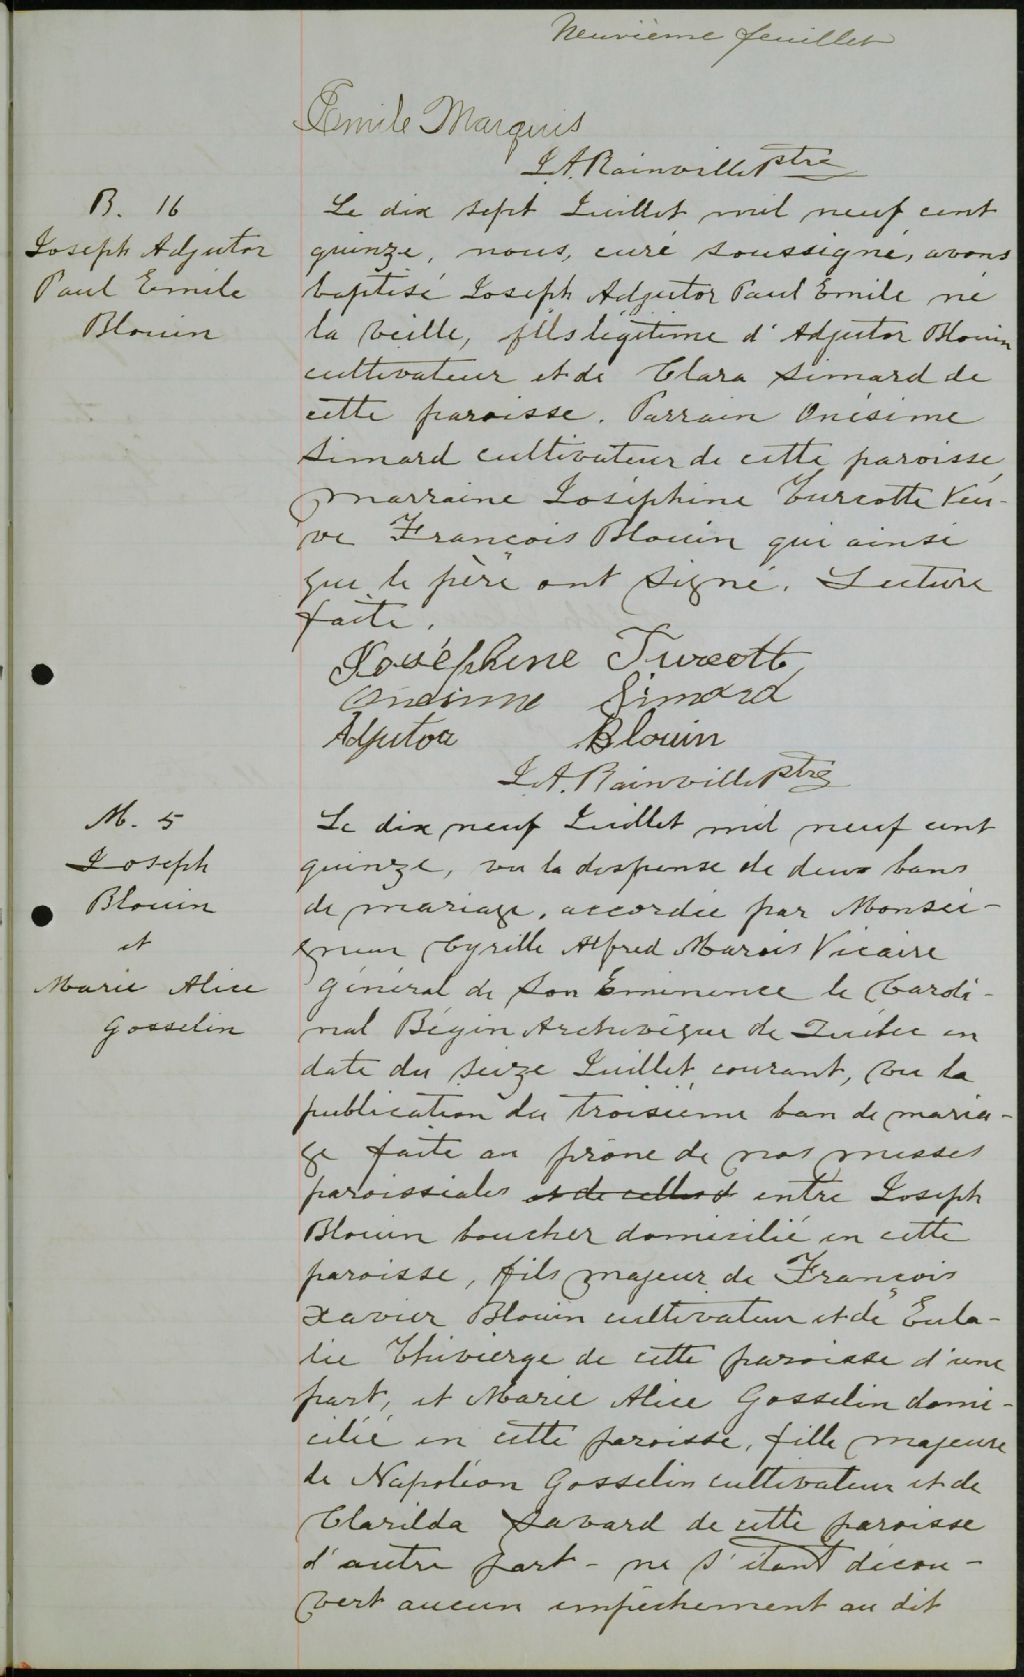 Neuvième feuillet
Emile Marquis
J.A. Rainville Ptre
B. 16
Joseph Adjutor
Paul Emile
Blouin
Le dix sept Juillet mil neuf cent
quinze, nous, curé soussigné, avons
baptisé Joseph Adjutor Paul Emile né
la veille, fils légitime d'Adjutor Blouin
cultivateur et de Clara Simard de
cette paroisse. Parrain Onésime
Simard cultivateur de cette paroisse
marraine Joséphine Turcotte Veu-
ve François Blouin qui ainsi
que le père ont signé. Lecture
faite.
Joséphine Turcotte
Onésime Simard
Adjutor Blouin
J.A. Rainville Ptre
M. 5
Joseph
Blouin
et
Marie Alice
Gosselin
Le dix neuf Juillet mil neuf cent
quinze, vu la dispense de deux bans
de mariage, accordée par Monsei-
gneur Cyrille Alfred Marois Vicaire
Général de Son Eminence le Cardi-
nal Bégin Archevêque de Québec en
date du seize Juillet courant, vu la
publication du troisième ban de maria-
ge faite au prône de nos messes
paroissiales et de celles d entre Joseph
Blouin boucher domicilié en cette
paroisse, fils majeur de François
Xavier Blouin cultivateur et de Eula-
lie Thivierge de cette paroisse d'une
part, et Marie Alice Gosselin domi-
cilié en cette paroisse, fille majeure
de Napoléon Gosselin cultivateur et de
Clarilda Savard de cette paroisse
d'autre part - ne s'étant décou-
vert aucun empêchement au dit